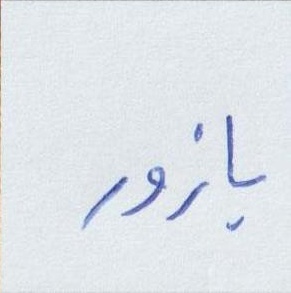 يازور